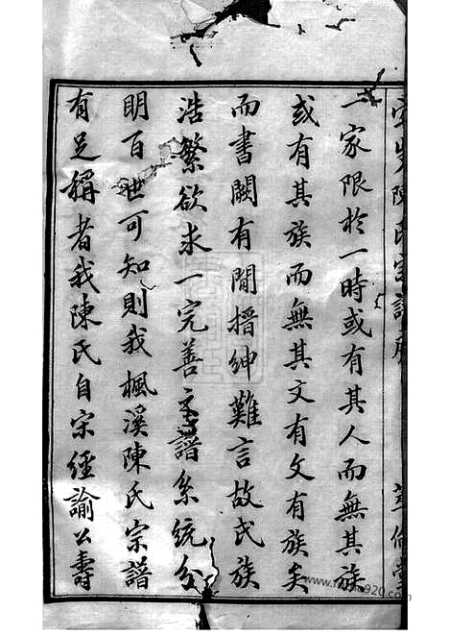 一家限於一時或有其人而無其族
或有其族而無其文有文有族矣
而書闕有間搢紳難言故氏族
浩繁欲求一完善之譜系統分
明百世可知則我楓溪陳氏宗譜
有足稱者我陳氏自宋經諭公壽